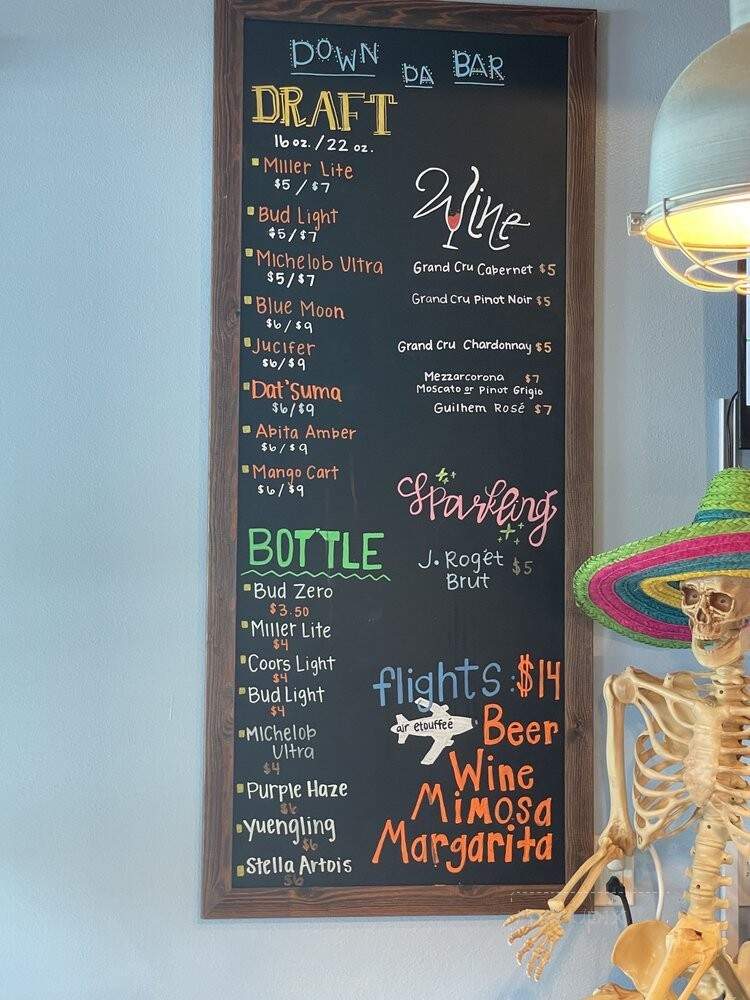 DOWN DA BAR
DRAFT
16 oz. / 22 oz.
Miller Lite
$5 / $7
Bud Light
$5/$7
Michelob Ultra
$5/$7
Blue Moon
$6/$9
Jucifer
$6/$9
Dat'Suma
$6/$9
Abita Amber
$6/$9
Mango Cart
$6/$9
BOTTLE
Bud Zero
$3.50
Miller Lite
$4
Coors Light
$4
Bud Light
$4
Michelob
Ultra
$4
Purple Haze
$6
Yuengling
$6
Stella Artois
$6
Wine
Grand Cru Cabernet $5
Grand Cru Pinot Noir $5
Grand Cru Chardonnay $5
Mezzarcorona $7
Moscato or Pinot Grigio
Guilhem Rosé $7
Sparkling
J. Rogét $5
Brut
flights: $14
air etouffeé
Beer
Wine
Mimosa
Margarita